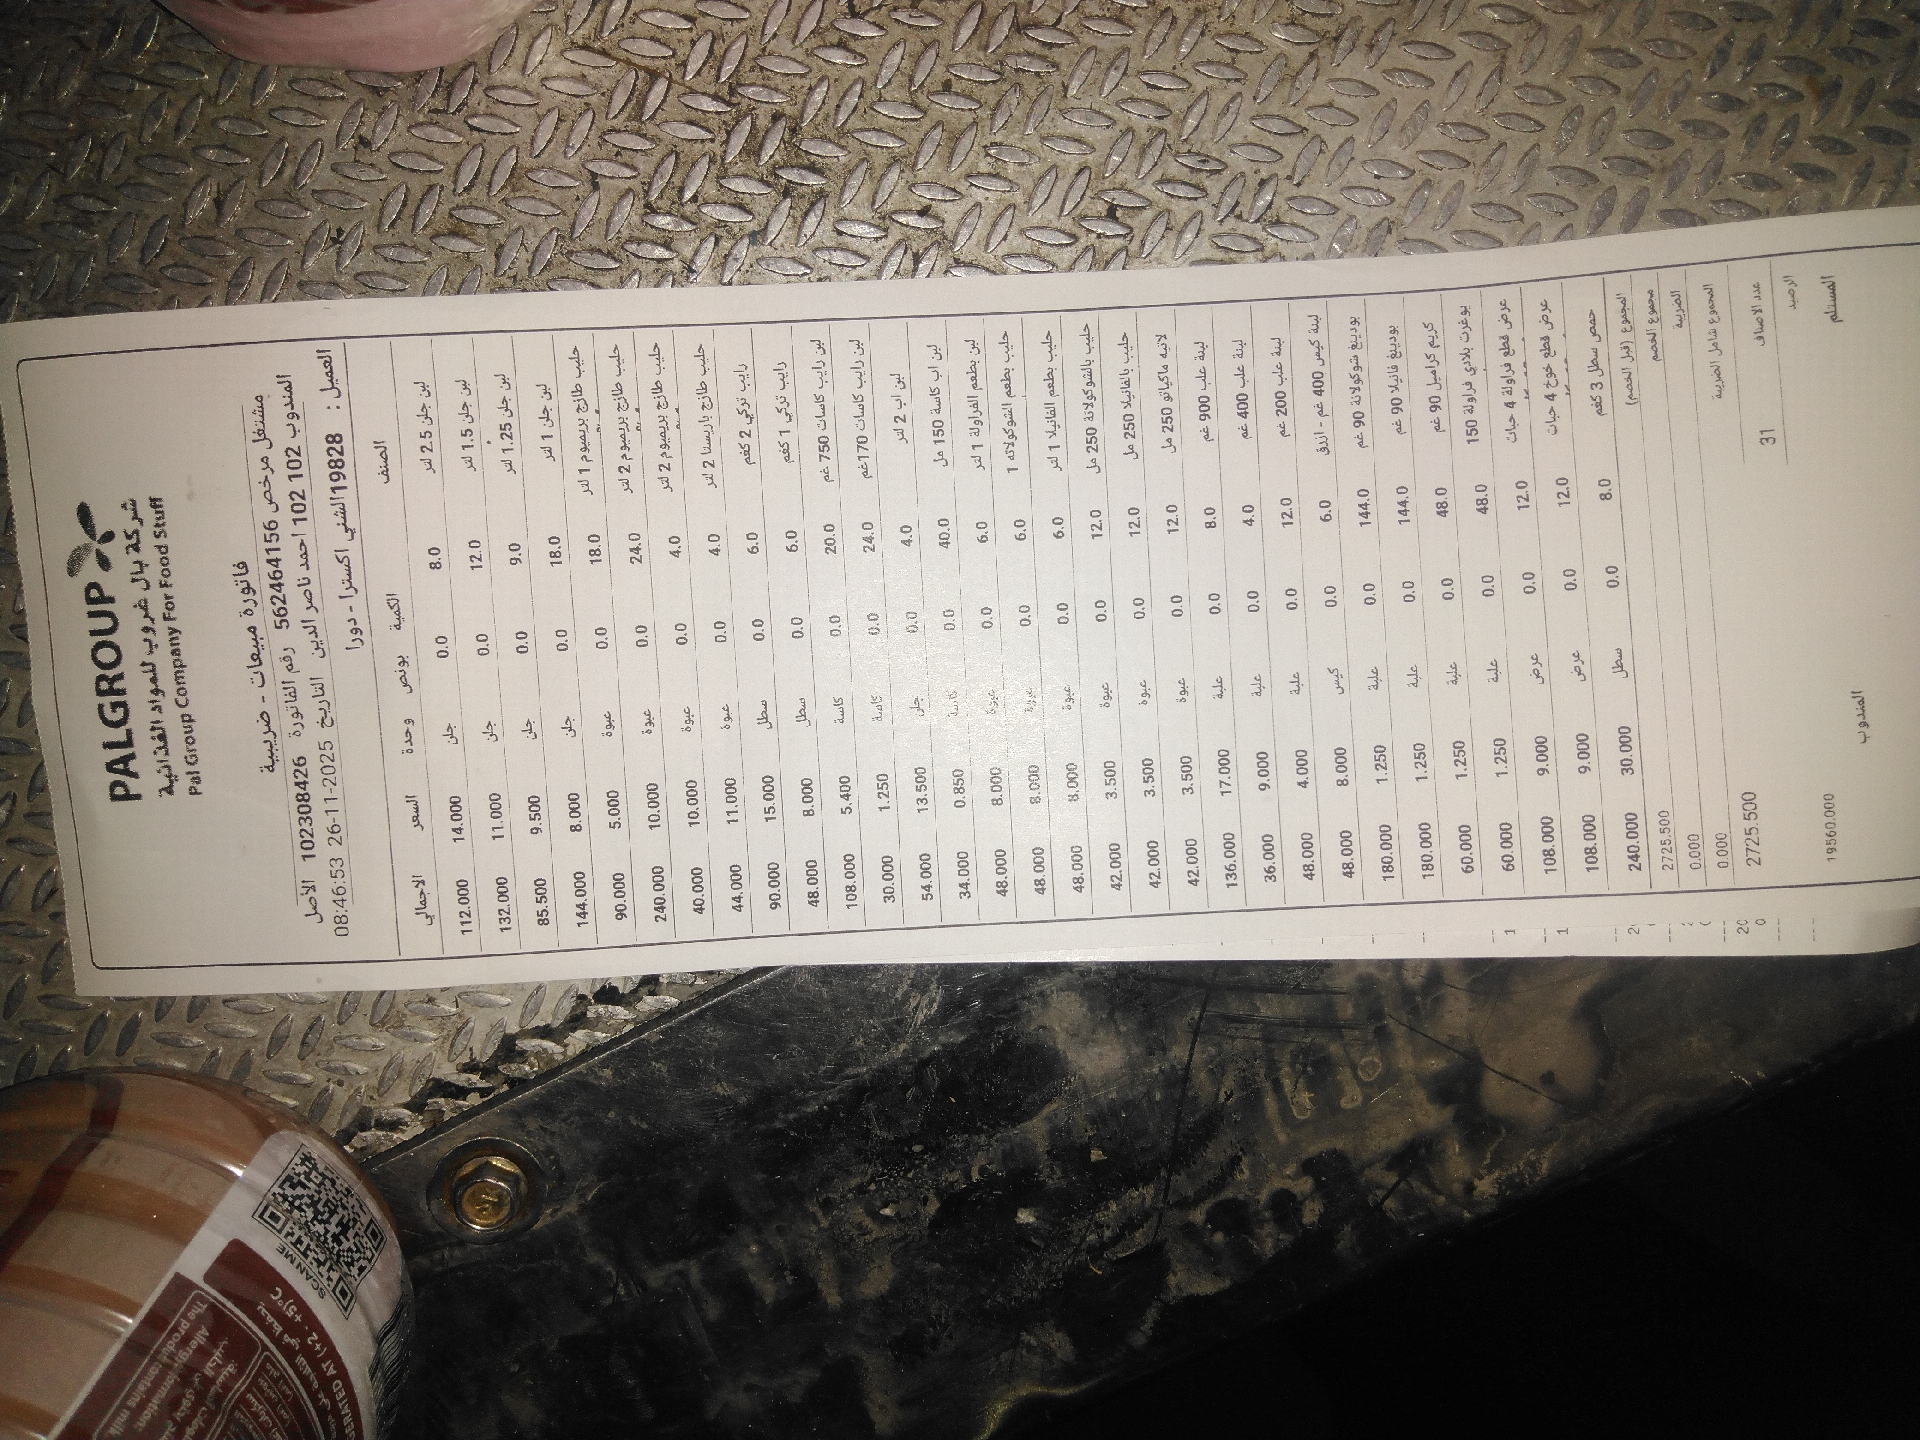 PALGROUP
شركة بال غروب للمواد الغذائية
Pal Group Company For Food Stuff
فاتورة مبيعات - ضريبية
مشتغل مرخص 562464156 رقم الفاتورة 102308426 الاصل
المندوب 102 102 احمد ناصر الدين التاريخ 2025-11-26 08:46:53
العميل : 19828الشني اكسترا - دورا
الصنف الكمية بونص وحدة السعر الاجمالي
لبن جلن 2.5 لتر 8.0 0.0 جلن 14.000 112.000
لبن جلن 1.5 لتر 12.0 0.0 جلن 11.000 132.000
لبن جلن 1.25 لتر 9.0 0.0 جلن 9.500 85.500
لبن جلن 1 لتر 18.0 0.0 جلن 8.000 144.000
حليب طازج بريميوم 1 لتر 18.0 0.0 عبوة 5.000 90.000
حليب طازج بريميوم 2 لتر 24.0 0.0 عبوة 10.000 240.000
حليب طازج بريميوم 2 لتر 4.0 0.0 عبوة 10.000 40.000
حليب طازج باريستا 2 لتر 4.0 0.0 عبوة 11.000 44.000
رايب تركي 2 كغم 6.0 0.0 سطل 15.000 90.000
رايب تركي 1 كغم 6.0 0.0 سطل 8.000 48.000
لبن رايب كاسات 750 غم 20.0 0.0 كاسة 5.400 108.000
لبن رايب كاسات 170غم 24.0 0.0 كاسة 1.250 30.000
لبن اب 2 لتر 4.0 0.0 جلن 13.500 54.000
لبن اب كاسة 150 مل 40.0 0.0 كاسة 0.850 34.000
لبن بطعم الفراولة 1 لتر 6.0 0.0 عبوة 8.000 48.000
حليب بطعم الشوكولاته 1 6.0 0.0 عبوة 8.000 48.000
حليب بطعم الفانيلا 1 لتر 6.0 0.0 عبوة 8.000 48.000
حليب بالشوكولاتة 250 مل 12.0 0.0 عبوة 3.500 42.000
حليب بالفانيلا 250 مل 12.0 0.0 عبوة 3.500 42.000
لاتيه ماكياتو 250 مل 12.0 0.0 عبوة 3.500 42.000
لبنة علب 900 غم 8.0 0.0 علبة 17.000 136.000
لبنة علب 400 غم 4.0 0.0 علبة 9.000 36.000
لبنة علب 200 غم 12.0 0.0 علبة 4.000 48.000
لبنة كيس 400 غم - ازرق 6.0 0.0 كيس 8.000 48.000
بودينغ شوكولاتة 90 غم 144.0 0.0 علبة 1.250 180.000
بودينغ فانيلا 90 غم 144.0 0.0 علبة 1.250 180.000
كريم كراميل 90 غم 48.0 0.0 علبة 1.250 60.000
يوغرت بلادي فراولة 150 48.0 0.0 علبة 1.250 60.000
عرض قطع فراولة 4 حبات 12.0 0.0 عرض 9.000 108.000
عرض قطع خوخ 4 حبات 12.0 0.0 عرض 9.000 108.000
حمص سطل 3 كغم 8.0 0.0 سطل 30.000 240.000
المجموع (قبل الخصم) 2725.500
مجموع الخصم 0.000
الضريبة 0.000
المجموع شامل الضريبة 2725.500
عدد الاصناف 31
الرصيد 19560.000
المستلم المندوب
SCAN ME